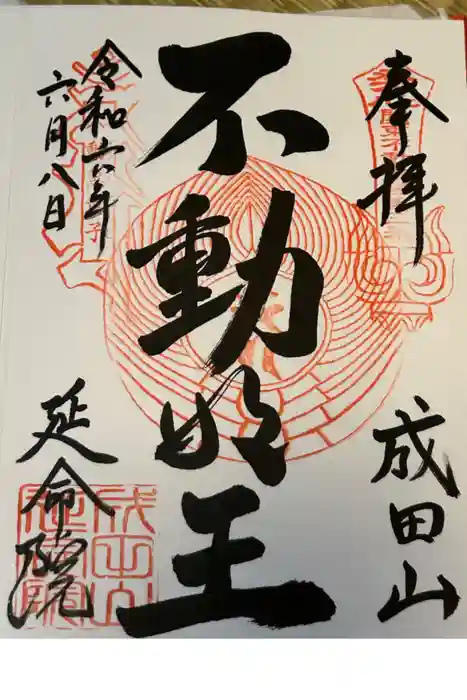 奉拝
成田山
不動明王
令和六年
六月八日
延命院
成田山
延命院